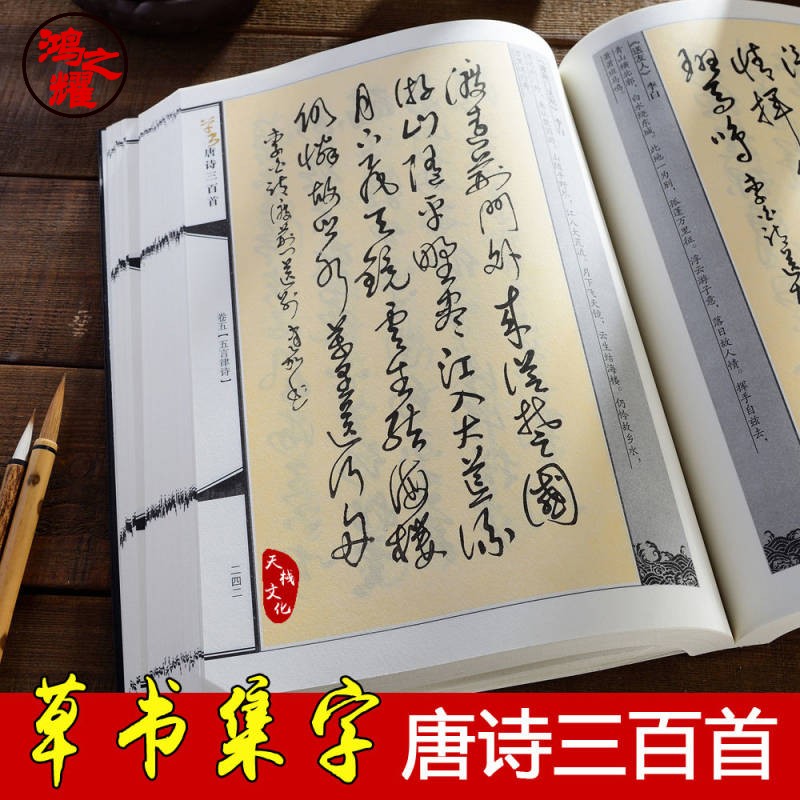 鸿之耀
《送友人》李白
青山横北郭，白水绕东城。此地一为别，孤蓬万里征。浮云游子意，落日故人情。挥手自兹去，
萧萧班马鸣。
情挥
班马鸣
李白诗送友
江入大荒流。月下飞天镜，云生结海楼。仍怜故乡水，
渡远荆门外来从楚国
游山随平野尽江入大荒流
月下飞天镜云生结海楼
仍怜故乡水万里送行舟
李白诗渡荆门送别
草书唐诗三百首
卷五【五言律诗】
二四二
天栈文化
草书集字
唐诗三百首